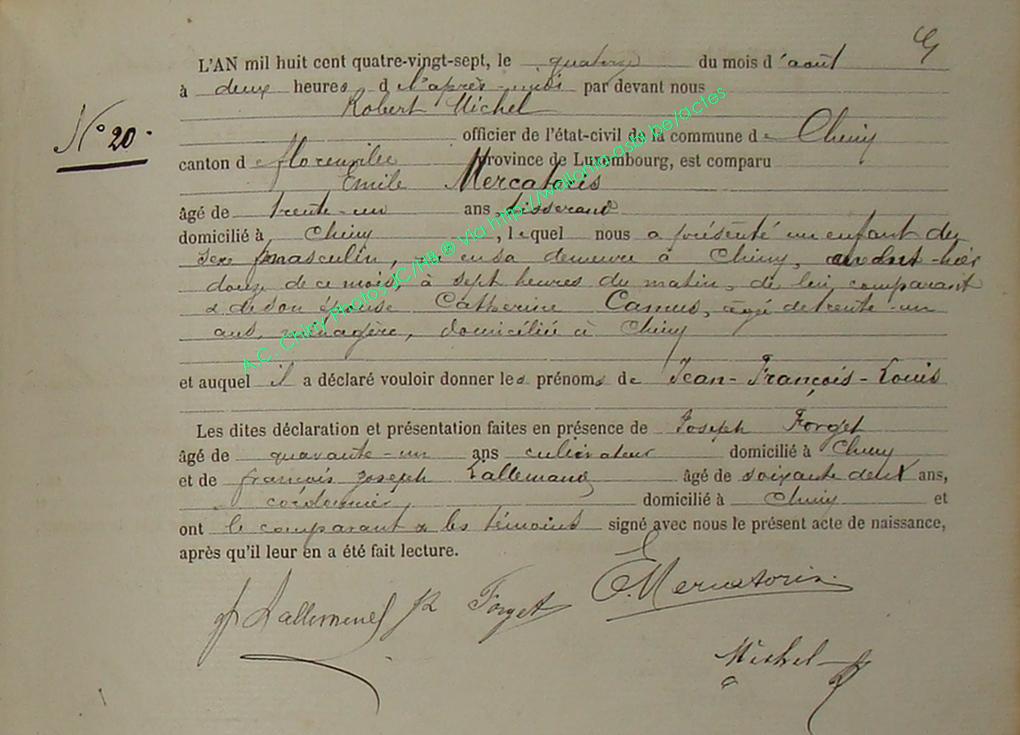 G
L'AN mil huit cent quatre-vingt-sept, le quatorze du mois d'août
à deux heures d l'après-midi par devant nous
Robert Michel
N° 20.
officier de l'état-civil de la commune de Chiny
canton de florenville province de Luxembourg, est comparu
Emile Mercatoris
âgé de trente-un ans, tisserand
domicilié à Chiny, lequel nous a présenté un enfant du
sexe masculin, né en sa demeure à Chiny, avant-hier
douze de ce mois, à sept heures du matin, de lui comparant
& de son épouse Catherine Camus, âgé de trente-un
ans, ménagère, domiciliée à Chiny
et auquel il a déclaré vouloir donner les prénoms de Jean-François-Louis
Les dites déclaration et présentation faites en présence de Joseph Forget
âgé de quarante-un ans cultivateur domicilié à Chiny
et de françois joseph Lallemand âgé de soixante deux ans,
cordonnier domicilié à Chiny et
ont le comparant & les témoins signé avec nous le présent acte de naissance,
après qu'il leur en a été fait lecture.
Lallemend Forget E. Mercatoris
Michel
A.C. Chiny Photos JC/HB ® Via http://wallonia.asbl.be/actes